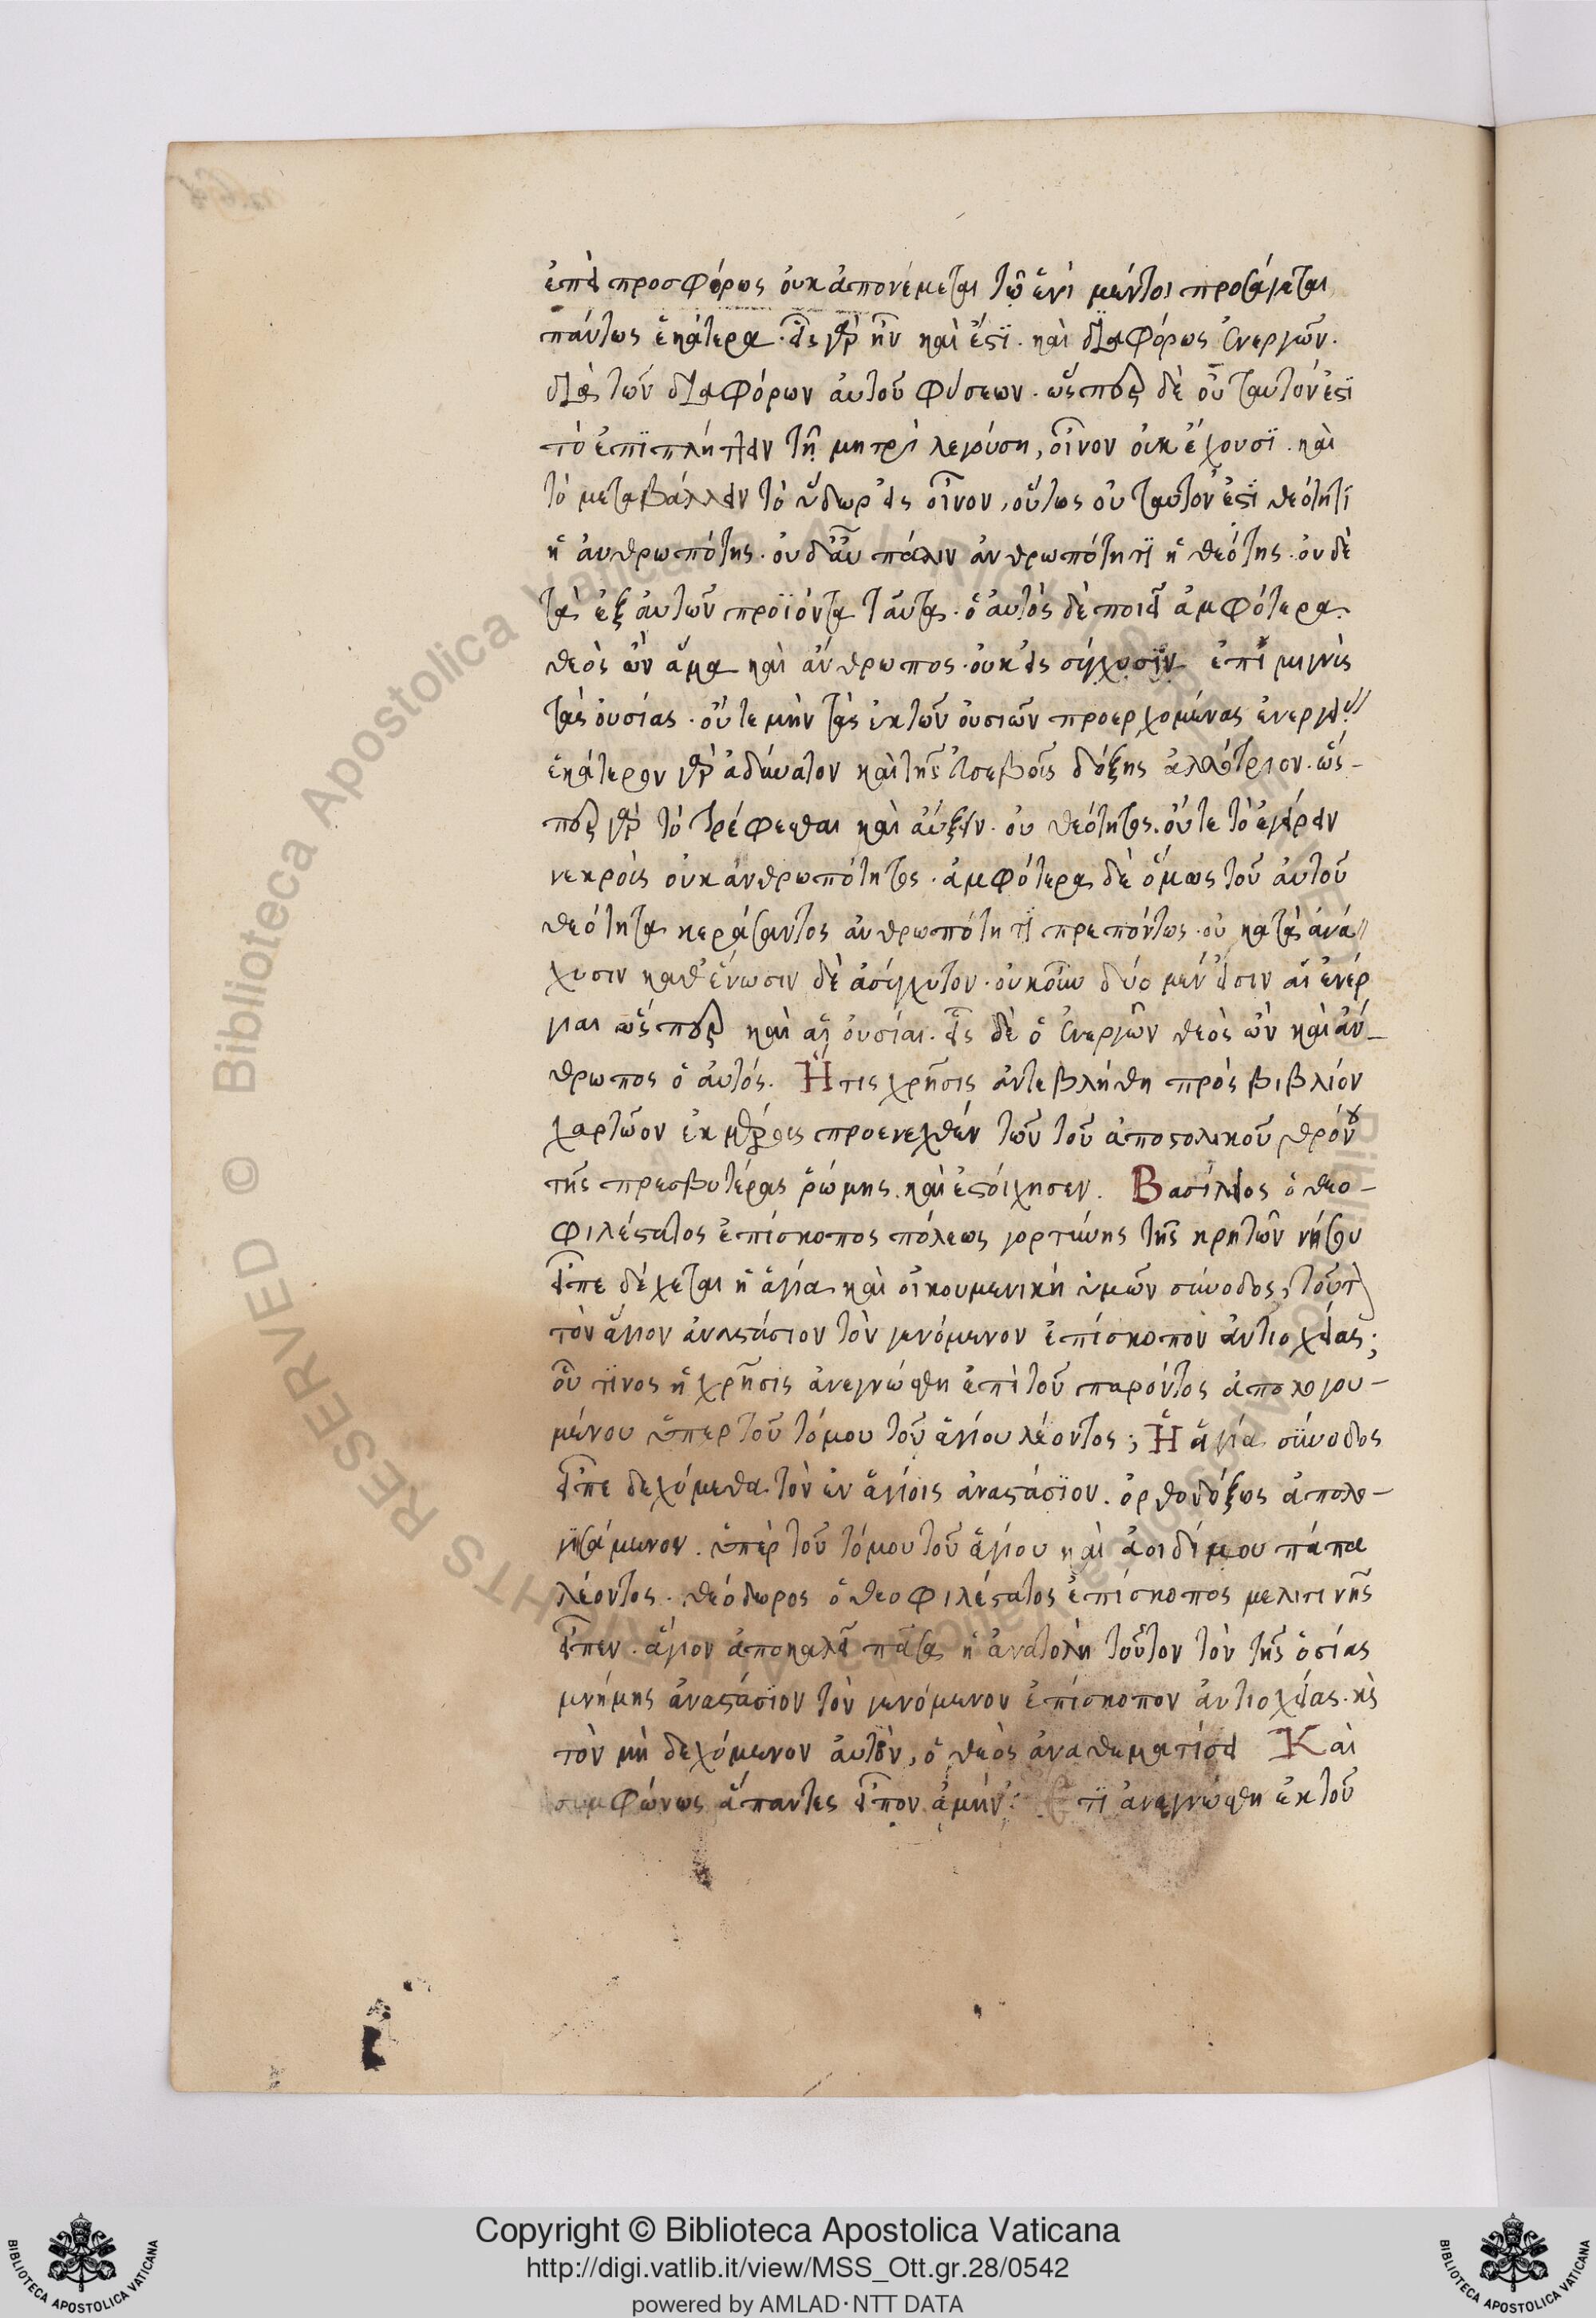 ἐπεὶ προσφόρως οὐκ ἀπονέμεται τῷ ἑνὶ μέντοι προσάγεται
πάντως ἑκάτερα. εἷς γὰρ ἦν καὶ ἐστὶ. καὶ διαφόρως ἐνεργῶν.
διὰ τῶν διαφόρων αὐτοῦ φύσεων. ὥσπερ δὲ οὐ ταυτόν ἐστὶ
τὸ ἐπιπλήττειν τῇ μητρὶ λεγούσῃ, οἶνον οὐκ ἔχουσι. καὶ
τὸ μεταβάλλειν τὸ ὕδωρ εἰς οἶνον, οὕτως οὐ ταυτὸν ἐστὶ θεότητί
ἡ ἀνθρωπότης. οὐδ' ἂν πάλιν ἀνθρωπότητι ἡ θεότης. οὐδὲ
τὰ ἐξ αὐτῶν προϊόντα ταῦτα. ὁ αὐτὸς δὲ ποιεῖ ἀμφότερα
θεὸς ὢν ἅμα καὶ ἄνθρωπος. οὐκ εἰς σύγχυσιν ἐπιμιγνὺς
τὰς οὐσίας. οὔτε μὴν τὰς ἐκ τῶν οὐσιῶν προερχομένας ἐνεργεί
ἑκάτερον γὰρ ἀδύνατον καὶ τῆς εὐσεβοῦς δόξης ἀλλότριον. ὥσ-
περ γὰρ τὸ τρέφεσθαι καὶ αὔξειν. οὐ θεότητος. οὔτε τὸ ἐγείρειν
νεκροὺς οὐκ ἀνθρωπότητος. ἀμφότερα δὲ ὅμως τοῦ αὐτοῦ
θεότητα κεράσαντος ἀνθρωπότητι πρεπόντως. οὐ κατὰ ἀνά
χυσιν καθ' ἕνωσιν δὲ ἀσύγχυτον. οὐκοῦν δύο μέν εἰσιν αἱ ἐνέρ
γιαι ὥσπερ καὶ αἱ οὐσίαι. εἷς δὲ ὁ ἐνεργῶν θεὸς ὢν καὶ ἄν-
θρωπος ὁ αὐτός. Ἥτις χρῆσις ἀντεβλήθη πρὸς βιβλίον
χαρτῶον ἐκ μέρους προενεχθὲν τῶν τοῦ ἀποστολικοῦ θρόνου
τῆς πρεσβυτέρας ῥώμης. καὶ ἐστοίχησεν. Βασίλειος ὁ θεο-
φιλέστατος ἐπίσκοπος πόλεως γορτύνης τῆς κρητῶν νήσου
εἶπε δέχεται ἡ ἁγία καὶ οἰκουμενικὴ ὑμῶν σύνοδος, τοῦτ
τὸν ἅγιον ἀναστάσιον τὸν γενόμενον ἐπίσκοπον ἀντιοχείας;
οὗ τινος ἡ χρῆσις ἀνεγνώσθη ἐπὶ τοῦ παρόντος ἀπολογου-
μένου ὑπερ τοῦ τόμου τοῦ ἁγίου λέοντος; Ἡ ἁγία σύνοδος
εἶπε δεχόμεθα τὸν ἐν ἁγίοις ἀναστάσιον. ὀρθοδόξως ἀπολο-
γησάμενον. ὑπὲρ τοῦ τόμου τοῦ ἁγίου καὶ ἀοιδίμου πάπα
λέοντος. θεόδωρος ὁ θεοφιλέστατος ἐπίσκοπος μελιτινῆς
εἶπεν. ἅγιον ἀποκαλεῖ πᾶσα ἡ ἀνατολὴ τοῦτον τὸν τῆς ὁσίας
μνήμης ἀναστάσιον τὸν γενόμενον ἐπίσκοπον ἀντιοχείας. κὶ
τὸν μὴ δεχόμενον αὐτὸν, ὁ θεὸς ἀναθεματίσει Καὶ
συμφώνως ἅπαντες εἶπον ἀμήν: Ἔτι ἀνεγνώσθη ἐκ τοῦ
Copyright © Biblioteca Apostolica Vaticana
http://digi.vatlib.it/view/MSS_Ott.gr.28/0542
powered by AMLAD·NTT DATA